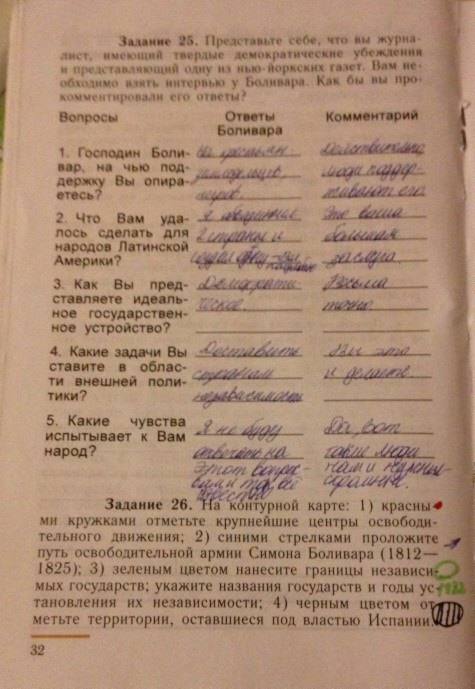 Задание 25. Представьте себе, что вы журна-
лист, имеющий твердые демократические убеждения
и представляющий одну из нью-йоркских газет. Вам не-
обходимо взять интервью у Боливара. Как бы вы про-
комментировали его ответы?
Вопросы Ответы Боливара Комментарий
1. Господин Боли-
вар, на чью под-
держку Вы опира-
етесь?
На крестьян
Действительно
люди поддер-
живают его.
2. Что Вам уда-
лось сделать для
народов Латинской
Америки?
Я
2 страны и
Это ваша
большая
заслуга.
3. Как Вы пред-
ставляете идеаль-
ное государствен-
ное устройство?
Демократи-
ческое.
Весьма
точно.
4. Какие задачи Вы
ставите в облас-
ти внешней поли-
тики?
Доставить
странам
независимость
Вы это
и делаете.
5. Какие чувства
испытывает к Вам
народ?
Я не буду
отвечать на
этот вопрос-
вами то всё
известно
Да, вот
такие люди
Задание 26. На контурной карте: 1) красны-
ми кружками отметьте крупнейшие центры освободи-
тельного движения; 2) синими стрелками проложите
путь освободительной армии Симона Боливара (1812—
1825); 3) зеленым цветом нанесите границы независи-
мых государств; укажите названия государств и годы ус-
тановления их независимости; 4) черным цветом от-
метьте территории, оставшиеся под властью Испании.
32